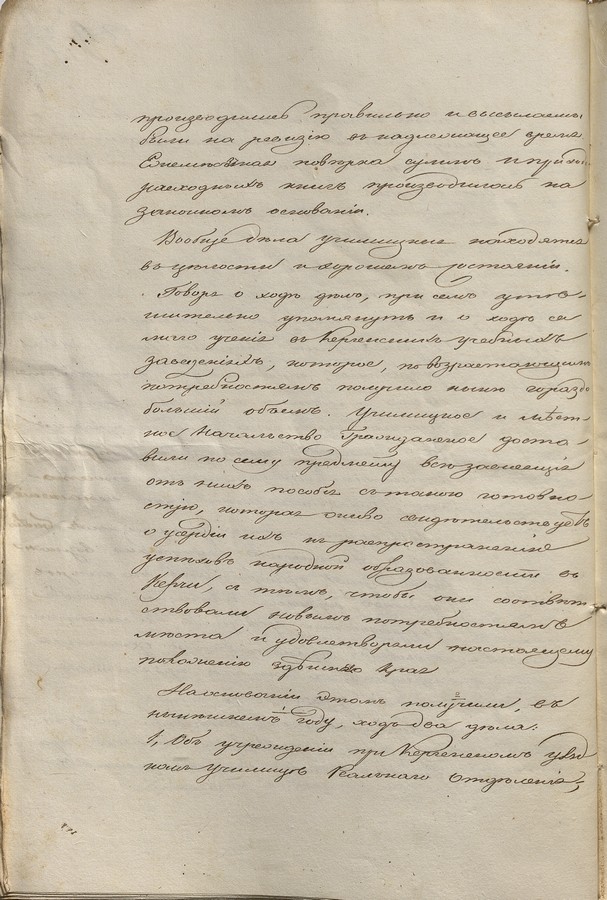 производились правильно и высылаемы
были на ревизію въ надлежащее время
Ежемѣсячная повѣрка суммъ и прихо-
расходныхъ книгъ производилась на
законномъ основаніи.
Вообще дѣла училищные находятся
въ цѣлости и хорошемъ состояніи.
Говоря о ходѣ дѣлъ, при семъ утѣ-
шительно упомянуть и о ходѣ са-
маго ученія въ Керченскихъ учебныхъ
заведеніяхъ, которое, по возрастающимъ
потребностямъ получило нынѣ гораздо
большій объемъ. Училищное и мѣст-
ное Начальство Гражданское доста-
вили по сему предмету всѣ зависящія
отъ нихъ пособія съ такою готовно-
стію, которая ясно свидѣтельствуетъ
о усердіи ихъ къ распространенію
успѣховъ народной образованности въ
Керчи, съ тѣмъ, чтобы они соотвѣт-
ствовали новымъ потребностямъ
мѣста и удовлетворяли настоящему
положенію здѣшняго края
На основаніи этомъ получили, въ
нынѣшнемъ году, ходъ два дѣла:
1, Объ учрежденіи при Керченскомъ уѣзд
номъ училищѣ Реальнаго Отдѣленія;